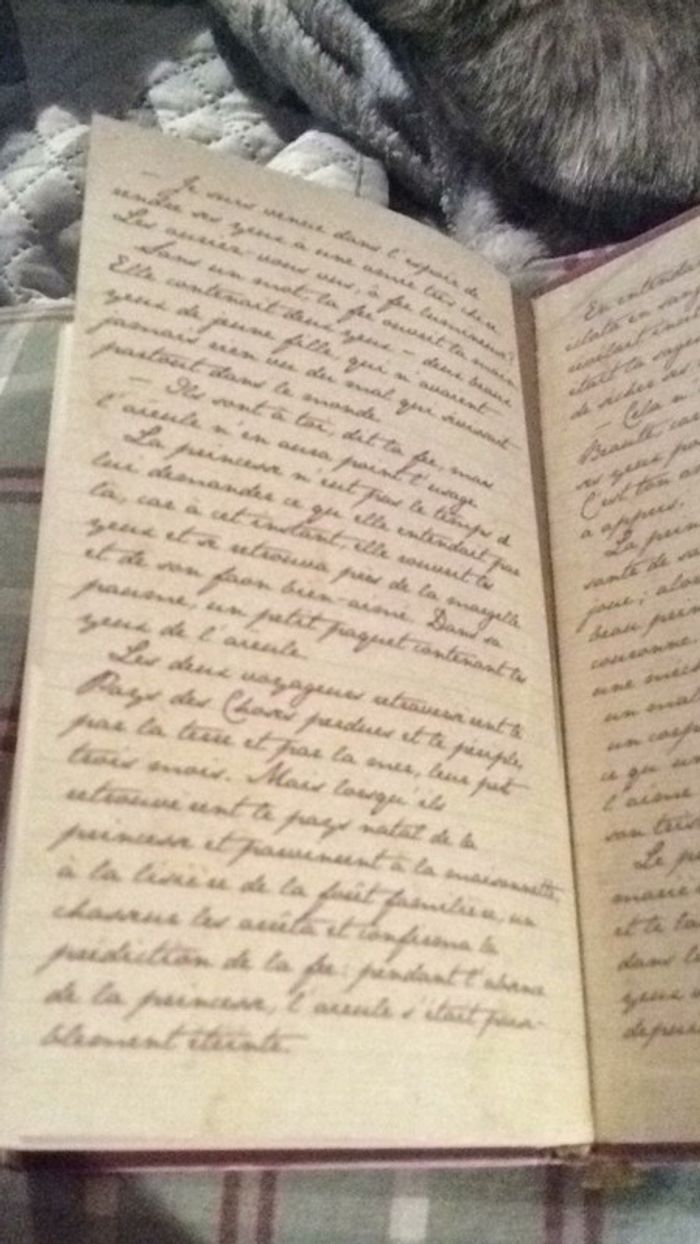 — Je suis venue dans l'espoir de
rendre ses yeux à une amie très chère.
Les auriez-vous vus, ô fée lumineuse?
Sans un mot, la fée ouvrit la main.
Elle contenait deux yeux — deux beaux
yeux de jeune fille, qui n'avaient
jamais rien vu du mal qui
partout dans le monde.
— Ils sont à toi, dit la fée, mais
l'aïeule n'en aura point l'usage.
La princesse n'eut pas le temps de
lui demander ce qu'elle entendait par
là, car à cet instant, elle rouvrit les
yeux et se retrouva près de la margelle
et de son faon bien-aimé. Dans sa
paume, un petit paquet contenant les
yeux de l'aïeule.
Les deux voyageurs retraversèrent le
Pays des Choses perdues et le périple,
par la terre et par la mer, leur prit
trois mois. Mais lorsqu'ils
retrouvèrent le pays natal de la
princesse et parvinrent à la maisonnette,
à la lisière de la forêt familière, un
chasseur les arrêta et confirma la
prédiction de la fée: pendant l'absence
de la princesse, l'aïeule s'était paisi-
blement éteinte.
En entendant
éclata en
était la
de sécher ses
— Cela n'
Beauté, car
ses yeux
C'est ton
a appris.
La
santé de
joue; alors
beau
couronne
une
un
un corps
ce qu'un
l'aime
son
Le
marie
et le
dans
yeux
depuis